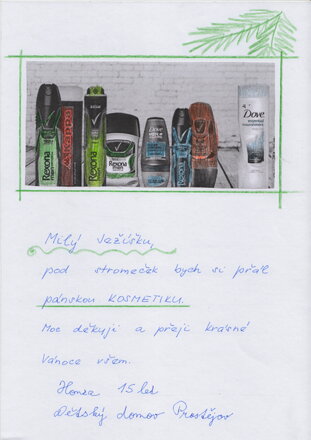 Rexona
MEN
Kappa
Rexona
men
Rexona
Dove
MEN+CARE
Rexona
Dove
Milý Ježíšku,
pod stromeček bych si přál
pánskou KOSMETIKU.
Moc děkuji a přeji krásné
Vánoce všem.
Honza 15 let
Dětský domov Prostějov